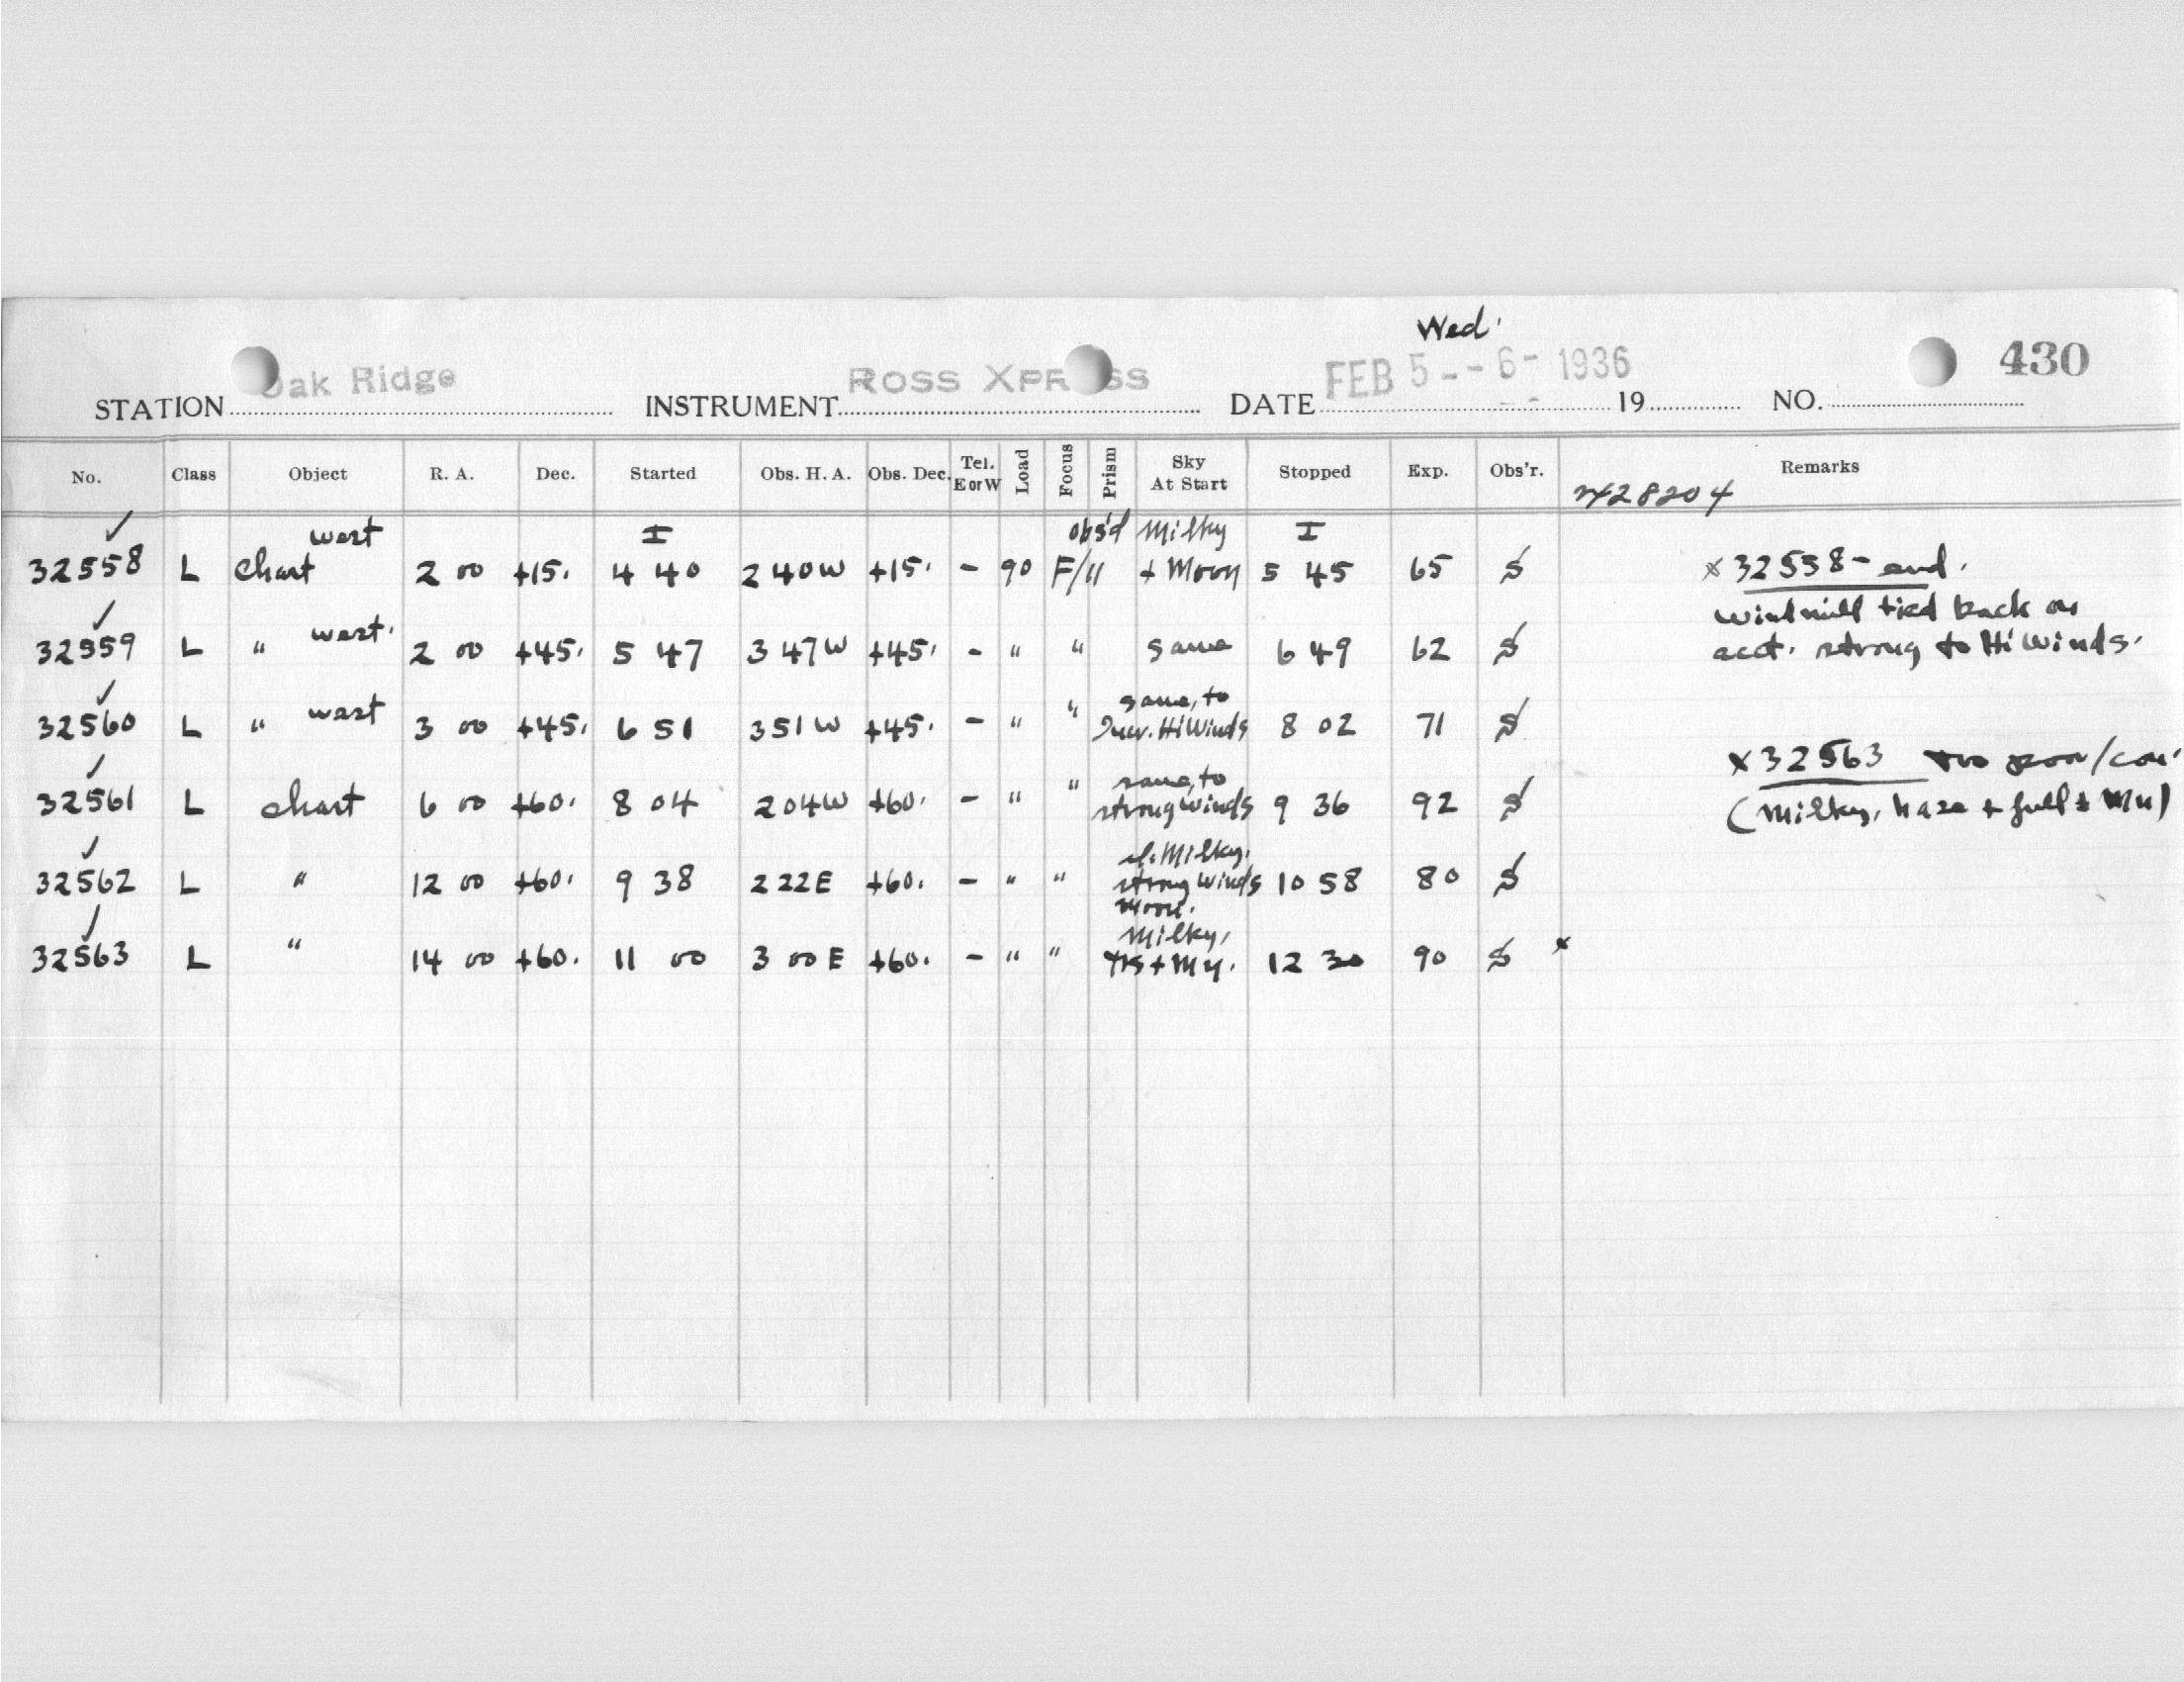 Wed.
STATION Oak Ridge INSTRUMENT ROSS XPRESS DATE FEB 5 - - 6 - 1936 19 NO. 430
No. Class Object R. A. Dec. Started Obs. H. A. Obs. Dec. Tel. E or W Load Focus Prism Sky At Start Stopped Exp. Obs'r. Remarks
2428204
west I obs'd Milky I
32558 L Chart 2 00 +15. 4 40 2 40 W +15. - 90 F/11 + Moon 5 45 65 S x 32558 - end.
windmill tied back on
32559 L " west. 2 00 +45. 5 47 3 47 W +45. - " " same 6 49 62 S acct. strong to Hi Winds.
same, to
32560 L " west 3 00 +45. 6 51 3 51 W +45. - " " Incr. Hi Winds 8 02 71 S
x 32563 too poor/con.
same, to
32561 L chart 6 00 +60. 8 04 2 04 W +60. - " " strong winds 9 36 92 S (Milky, haze + full + Mn)
sl. Milky.
32562 L " 12 00 +60. 9 38 2 22 E +60. - " " strong winds 10 58 80 S
Moon.
Milky,
32563 L " 14 00 +60. 11 00 3 00 E +60. - " " + 12 30 90 S x